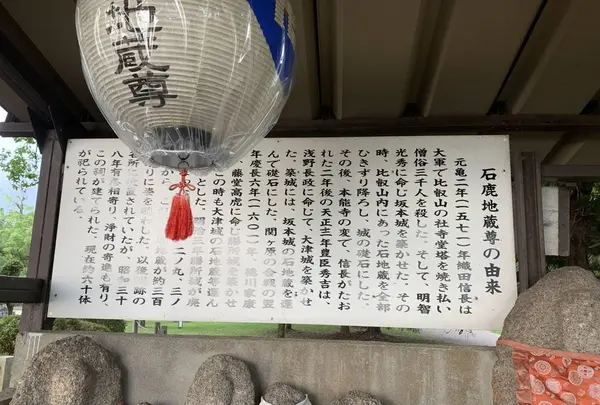 地蔵尊
石鹿地蔵尊の由来
元亀二年(一五七一)年織田信長は
大軍で比叡山の社寺堂塔を焼き払い
僧俗三千人を殺した。そして、明智
光秀に命じ坂本城を築かせた。その
時、比叡山内にあった石地蔵を全部
ひきずり降ろし、城の礎石にした。
その後、本能寺の変で、信長がたお
れた二年後の天正三年豊臣秀吉は、
浅野長政に命じて、大津城を築かせ
た。築城には、坂本城の石地蔵を運
んで礎石にした。関ヶ原の合戦の翌
年慶長六年(一六〇一)年、徳川家康
藤堂高虎に命じ膳所城を築かせ
この時も大津城の石地蔵等運ん
とした。明治三年膳所城が廃
から 二ノ丸、三ノ
地蔵が約三百
りに姿を現した。以後 跡の
名所に放置されていたが、昭和三十
八年有志相寄り、浄財の寄進も有り、
この祠が建てられた。現在約六十体
が祀られている。